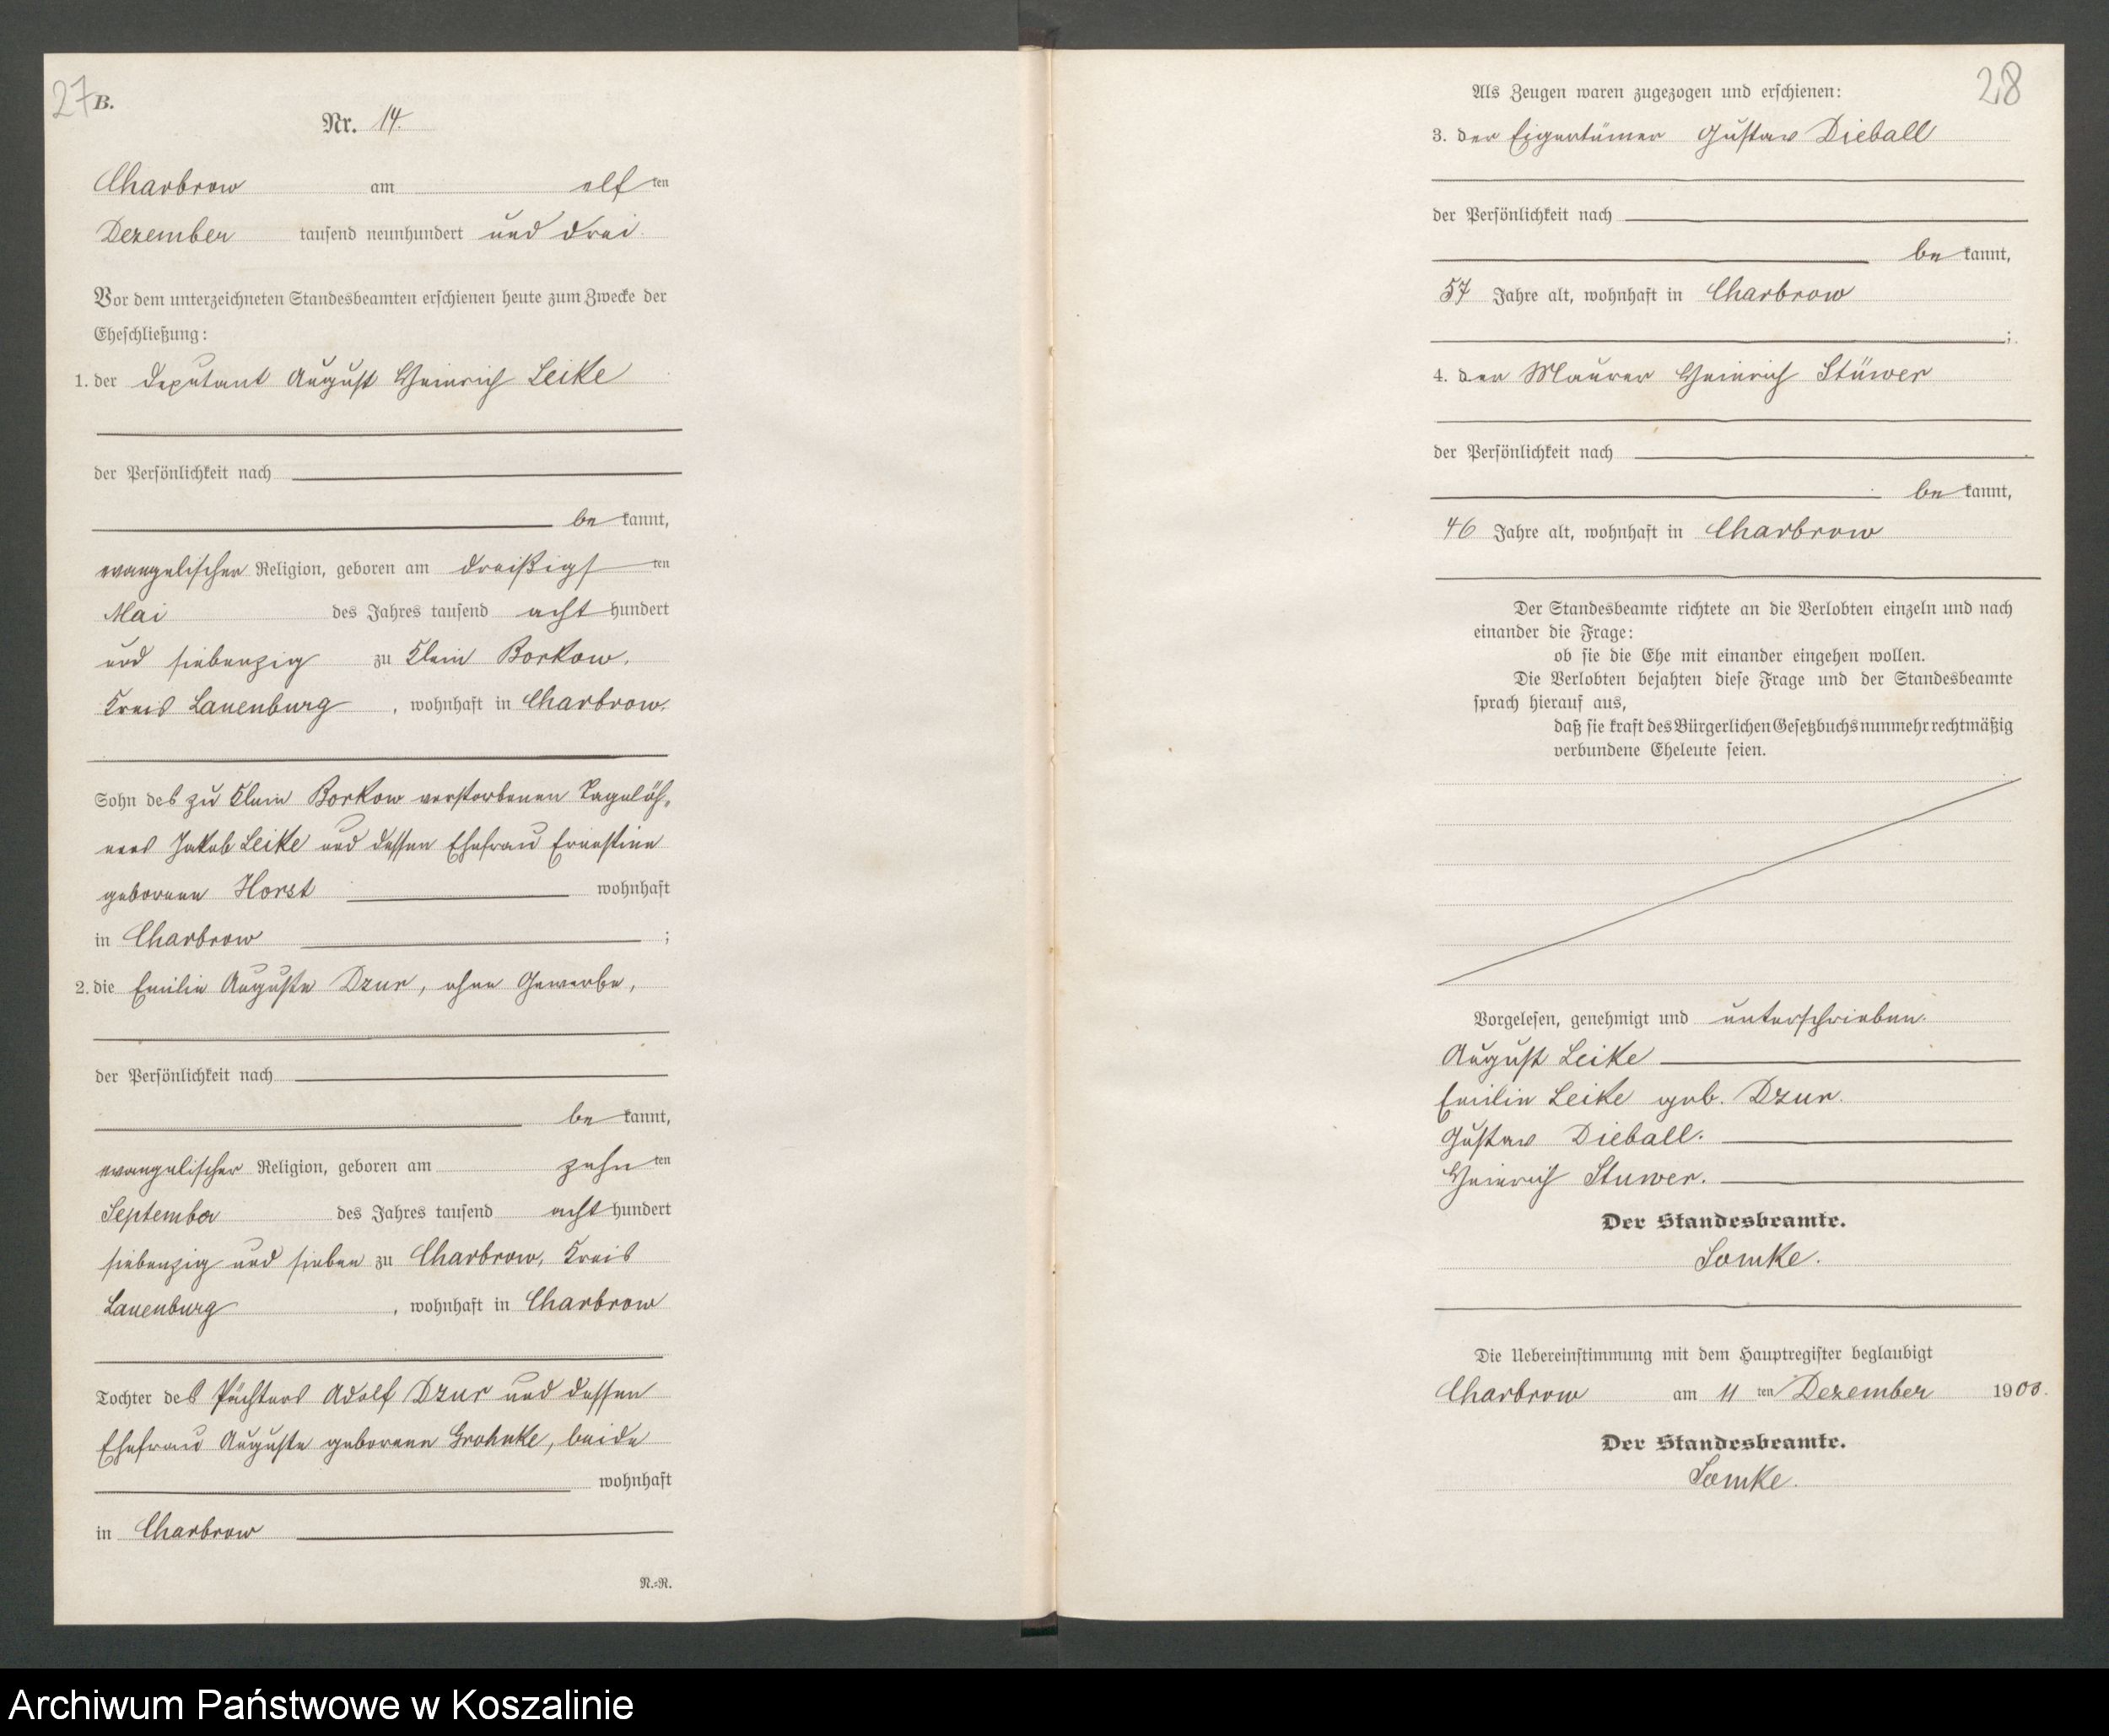 27
B.
Nr. 14.
Charbrow am elften
Dezember tausend neunhundert und drei.
Vor dem unterzeichneten Standesbeamten erschienen heute zum Zwecke der
Eheschließung:
1. der Deputant August Heinrich Leike
der Persönlichkeit nach
be kannt,
evangelischer Religion, geboren am dreißigsten
Mai des Jahres tausend acht hundert
und siebenzig zu Klein Borkow,
Kreis Lauenburg, wohnhaft in Charbrow,
Sohn des zu Klein Borkow verstorbenen Tagelöh-
ners Jakob Leike und dessen Ehefrau Ernestine
geborene Horst wohnhaft
in Charbrow ;
2. die Emilie Auguste Dzur, ohne Gewerbe,
der Persönlichkeit nach
be kannt,
evangelischer Religion, geboren am zehnten
September des Jahres tausend acht hundert
siebenzig und sieben zu Charbrow, Kreis
Lauenburg, wohnhaft in Charbrow
Tochter des Pächters Adolf Dzur und dessen
Ehefrau Auguste geborene Grohnke, beide
wohnhaft
in Charbrow
N.=N.
28
Als Zeugen waren zugezogen und erschienen:
3. der Eigentümer Gustav Dieball
der Persönlichkeit nach
be kannt,
57 Jahre alt, wohnhaft in Charbrow
;
4. der Maurer Heinrich Stüwer
der Persönlichkeit nach
be kannt,
46 Jahre alt, wohnhaft in Charbrow
Der Standesbeamte richtete an die Verlobten einzeln und nach
einander die Frage:
ob sie die Ehe mit einander eingehen wollen.
Die Verlobten bejahten diese Frage und der Standesbeamte
sprach hierauf aus,
daß sie kraft des Bürgerlichen Gesetzbuchs nunmehr rechtmäßig
verbundene Eheleute seien.
Vorgelesen, genehmigt und unterschrieben.
August Leike
Emilie Leike geb. Dzur.
Gustav Dieball.
Heinrich Stuwer.
Der Standesbeamte.
Lomke.
Die Uebereinstimmung mit dem Hauptregister beglaubigt
Charbrow am 11 ten Dezember 1903.
Der Standesbeamte.
Lomke.
Archiwum Państwowe w Koszalinie